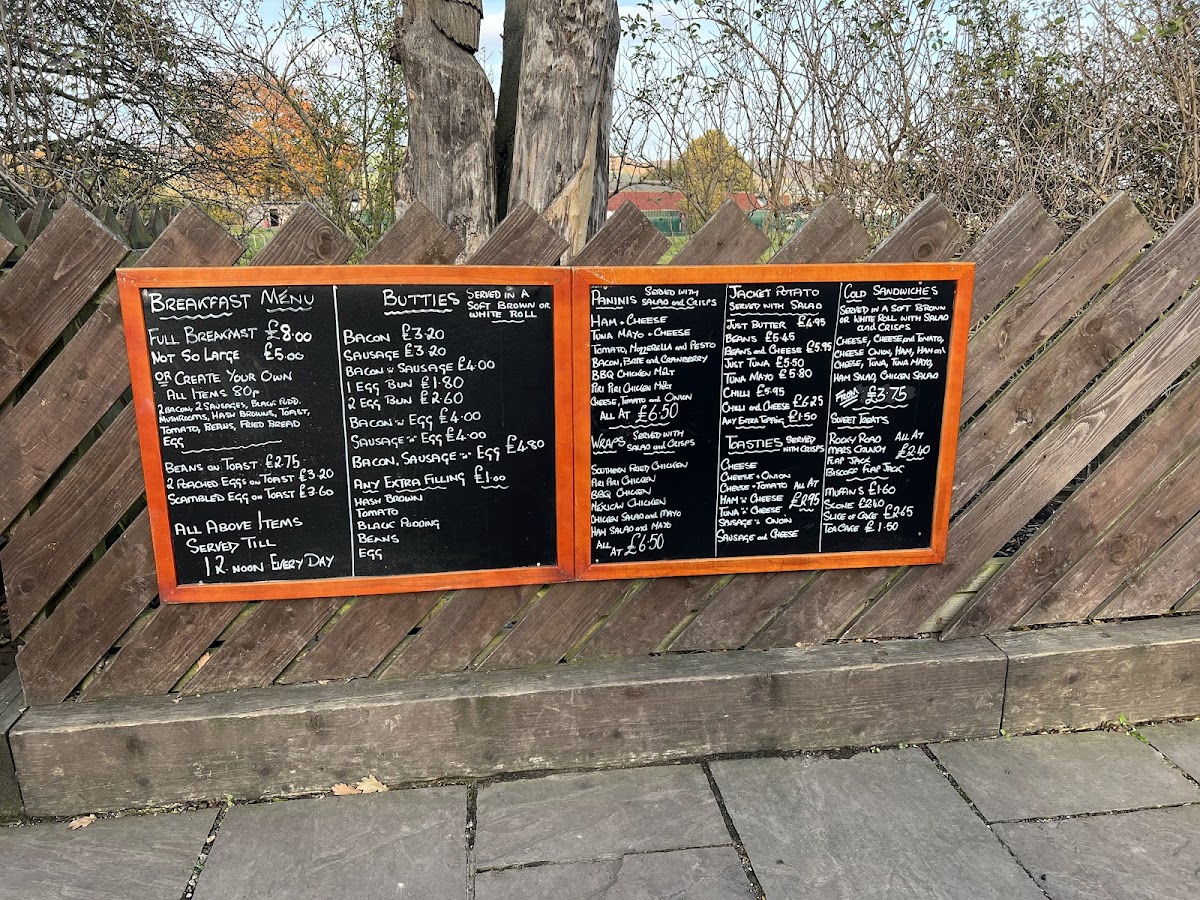 BREAKFAST MENU
FULL BREAKFAST £8.00
NOT SO LARGE £5.00
OR CREATE YOUR OWN
ALL ITEMS 80p
2 BACON, 2 SAUSAGES, BLACK PUDD.
MUSHROOMS, HASH BROWNS, TOAST,
TOMATO, BEANS, FRIED BREAD
EGG
BEANS ON TOAST £2.75
2 POACHED EGGS ON TOAST £3.20
SCAMBLED EGG ON TOAST £3.60
ALL ABOVE ITEMS
SERVED TILL
12. NOON EVERY DAY
BUTTIES SERVED IN A
SOFT BROWN OR
WHITE ROLL
BACON £3.20
SAUSAGE £3.20
BACON W SAUSAGE £4.00
1 EGG BUN £1.80
2 EGG BUN £2.60
BACON W EGG £4.00
SAUSAGE W EGG £4.00
BACON, SAUSAGE W EGG £4.80
ANY EXTRA FILLING £1.00
HASH BROWN
TOMATO
BLACK PUDDING
BEANS
EGG
PANINIS SERVED WITH
SALAD and CRISPS
HAM + CHEESE
TUNA MAYO + CHEESE
TOMATO, MOZZERELLA and PESTO
BACON, BRIE and CRANBERRY
BBQ CHICKEN MELT
PIRI PIRI CHICKEN MELT
CHEESE, TOMATO and ONION
ALL AT £6.50
WRAPS SERVED WITH
SALAD and CRISPS
SOUTHERN FRIED CHICKEN
PIRI PIRI CHICKEN
BBQ CHICKEN
MEXICAN CHICKEN
CHICKEN SALAD and MAYO
HAM SALAD and MAYO
ALL AT £6.50
JACKET POTATO
SERVED WITH SALAD
JUST BUTTER £4.95
BEANS £5.45
BEANS and CHEESE £5.95
JUST TUNA £5.50
TUNA MAYO £5.80
CHILLI £5.95
CHILLI and CHEESE £6.25
ANY EXTRA TOPPING £1.50
TOASTIES SERVED
WITH CRISPS
CHEESE
CHEESE + ONION
CHEESE + TOMATO ALL AT
HAM W CHEESE £2.95
TUNA W CHEESE
SAUSAGE W ONION
SAUSAGE and CHEESE
COLD SANDWICHES
SERVED IN A SOFT BROWN
OR WHITE ROLL WITH SALAD
and CRISPS
CHEESE, CHEESE and TOMATO,
CHEESE ONION, HAM, HAM and
CHEESE, TUNA, TUNA MAYO,
HAM SALAD, CHICKEN SALAD
FROM £3.75
SWEET TREATS
ROCKY ROAD ALL AT
MARS CRUNCH £2.40
FLAP JACK
BISCOFF FLAP JACK
MUFFINS £1.60
SCONE £2.40
SLICE OF CAKE £2.65
TEA CAKE £1.50